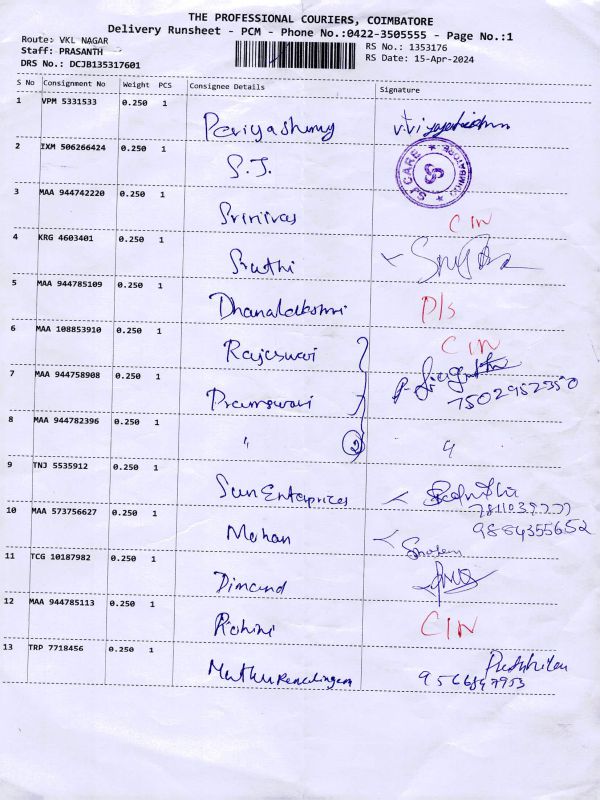 THE PROFESSIONAL COURIERS, COIMBATORE
Delivery Runsheet - PCM - Phone No.:0422-3505555 - Page No.:1
Route: VKL NAGAR
RS No.: 1353176
Staff: PRASANTH
RS Date: 15-Apr-2024
DRS No.: DCJB135317601
S No Consignment No Weight PCS Consignee Details Signature
1 VPM 5331533 0.250 1 Periyashamy
2 IXM 506266424 0.250 1 S.J.
SJ CARE * COIMBATORE *
3 MAA 944742220 0.250 1 Srinivas CIN
4 KRG 4603401 0.250 1 Sruthi
5 MAA 944785109 0.250 1 Dhanalakshmi D/s
6 MAA 108853910 0.250 1 Rajeswari CIN
7 MAA 944758908 0.250 1 Pramswari 7502952350
8 MAA 944782396 0.250 1 " 2 "
9 TNJ 5535912 0.250 1 Sun Enterprises
10 MAA 573756627 0.250 1 Mohan 9884355652
11 TCG 10187982 0.250 1 Dimand
12 MAA 944785113 0.250 1 Rohini CIN
13 TRP 7718456 0.250 1